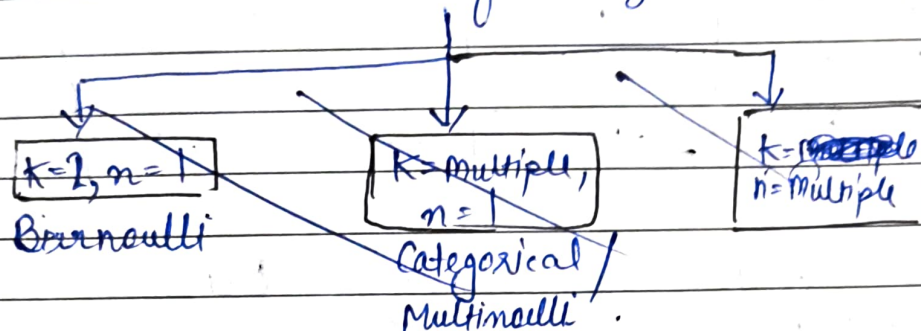 k=2, n=1
Bernoulli
k=multiple,
n=1
Categorical /
Multinoulli .
k=
n=multiple